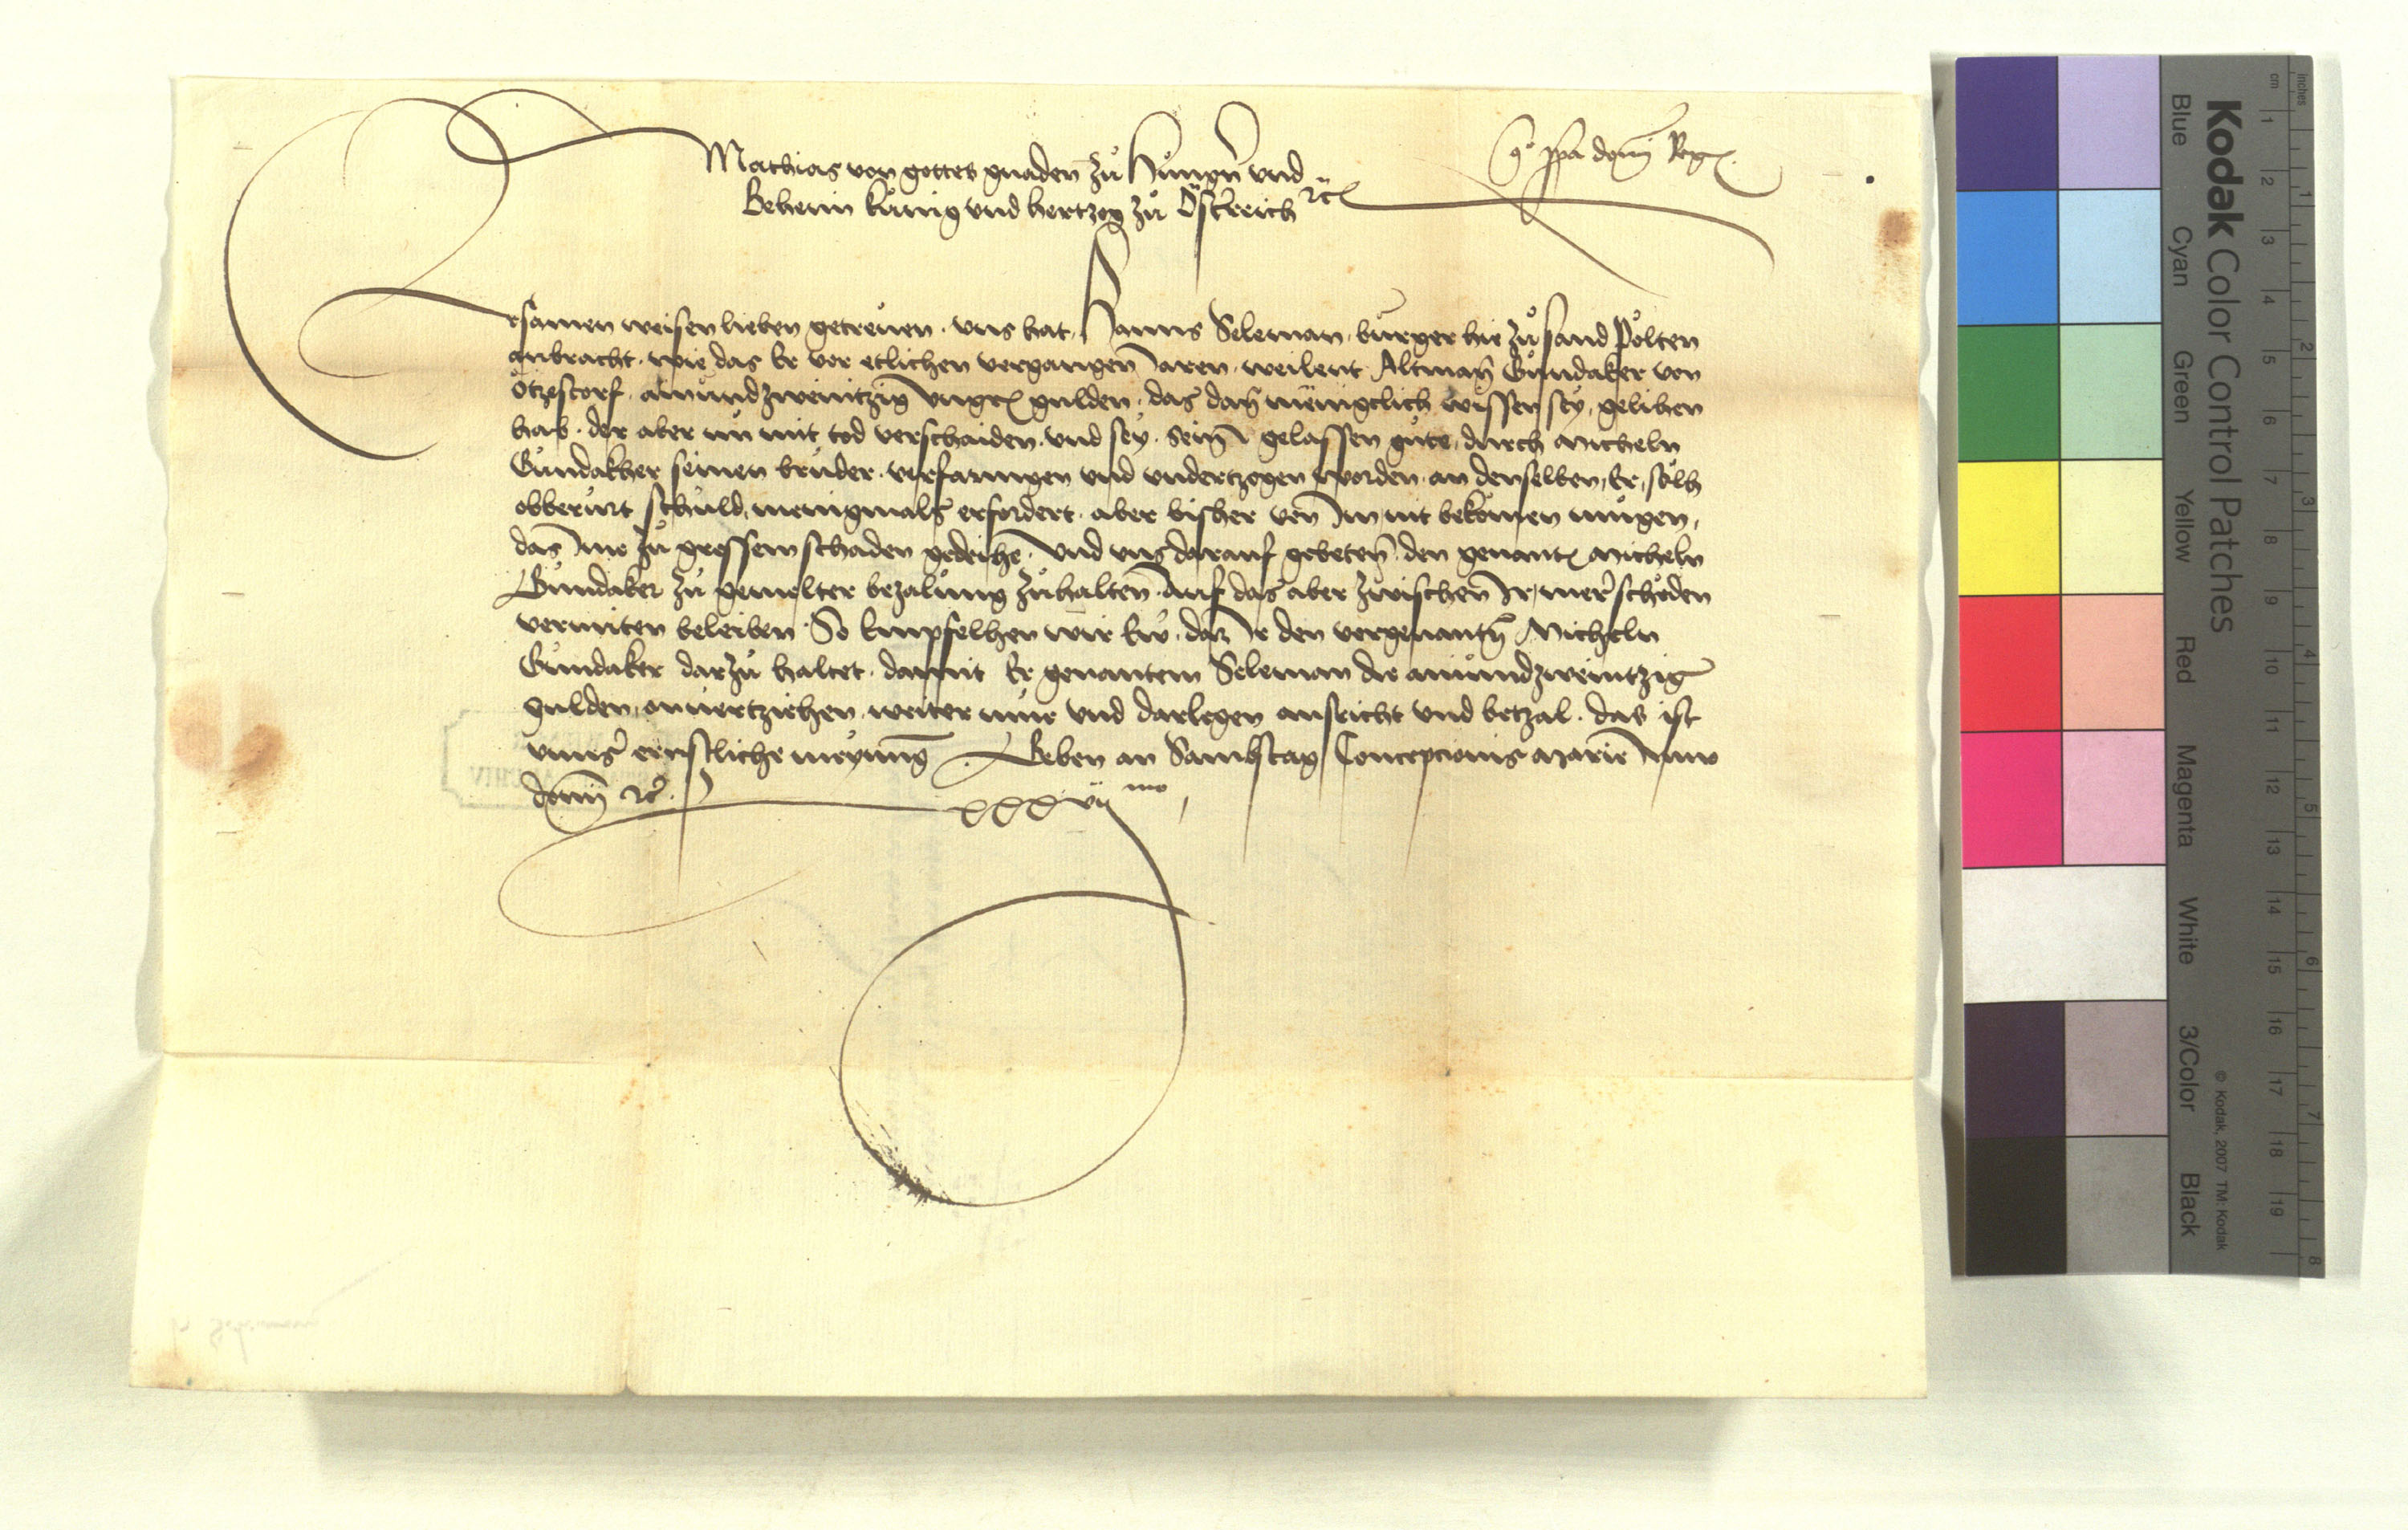 Mathias von gottes gnaden zů Hůngrñ und
Beheim kůnig und hertzog zů Österreich ꝛc̃
ppa domĩ Reg
Ersamen weisen lieben getreůen · uns hat · Hanns Seleman · bůrger hie zů sand Pölten
anbracht · wie das Er vor etlichen vergangen̄ Jaren · weilent Altman̄ Gůndaker von
Ötzestorf · ainůndzweintzig ungr̃ gulden · das dan̄ meñigclich wissen seÿ, gelihen
hab · der aber nů mit tod verschaiden · und seÿ · sein̄ gelassen gůte, důrch Micheln
Gůndakher seinen brůder · verfanngen und undertzogen worden · an denselben, Er, sölh
obberůrt schůld, menigmals erfordert · aber bisher von Im nit bekömen můgen,
das Ime zů grossem schaden gedeihe · und uns darauf gebeten̄ · den genant̃ Micheln
Gůndaker zů gemelter bezalůng zůhalten̄ · Auf das aber zwischen̄ Ir, merer schäden
vermiten beleiben · So Empfelhen wir Ew · daz Ir den vorgenantn̄ Micheln
Gůndaker darzů haltet · damit Er genantem Seleman die ainůndzweintzig
gůlden, onuertziehen, weiter můe und darlegen ausricht und betzal · das ist
unnser ernstliche meÿnung̃ · Geben an Sambstag Concepcionis Marie Anno
domĩ ꝛc̃ · lxxxvij mo
Kodak Color Control Patches
Blue Cyan Green Yellow Red Magenta White 3/Color Black
© Kodak, 2007 TM: Kodak
inches 1 2 3 4 5 6 7 8
cm 1 2 3 4 5 6 7 8 9 10 11 12 13 14 15 16 17 18 19